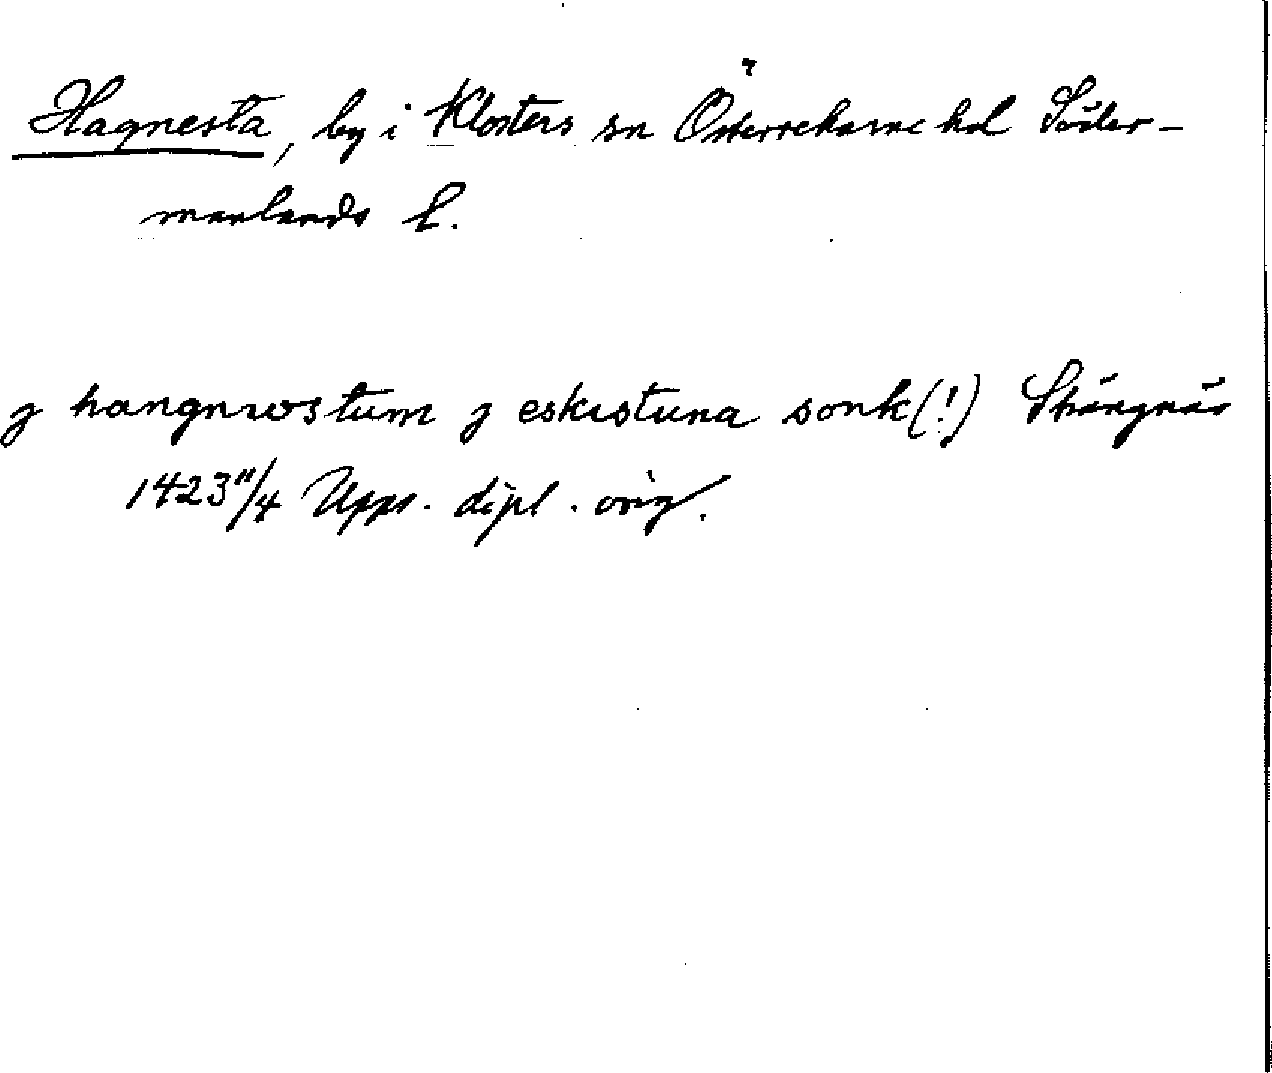 Hagnesta, by i Klosters sn Österrekarne hd Söder-
manlands l.
j hangnwostum j eskistuna sonk(!) Strängnäs
1423 11/4 Upps. dipl. orig.